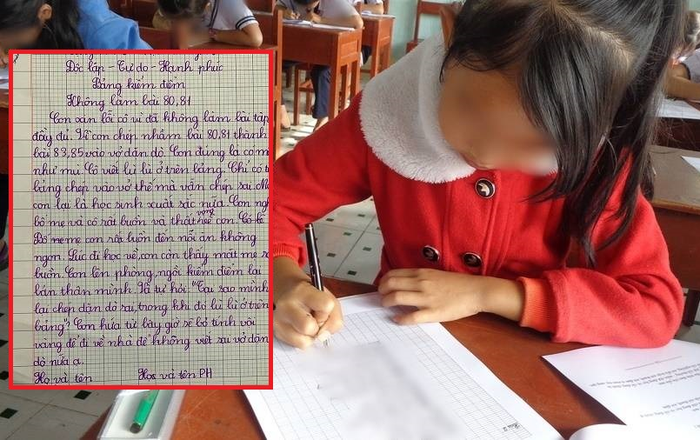 Độc lập - Tự do - Hạnh phúc
Bảng kiểm điểm
Không làm bài 80, 81
Con xin lỗi cô vì đã không làm bài tập
đầy đủ. Vì con chép nhầm bài 80,81 thành
bài 83,85 vào vở dặn dò. Con đúng là có m
như mù. Cô viết lù lù ở trên bảng. Chỉ có t
bảng chép vào vở thế mà vẫn chép sai. Mà
con lại là học sinh xuất sắc nữa. Con ngh
bố mẹ và cô rất buồn và thất vọng về con. Cô kể
Bố mẹ con rất buồn đến nỗi ăn không
ngon. Lúc đi học về, con còn thấy mặt mẹ r
buồn. Con lên phòng, ngồi kiểm điểm lại
bản thân mình. Và tự hỏi: "Tại sao mình
lại chép dặn dò sai, trong khi đó lù lù ở trên
bảng". Con hứa từ bây giờ sẽ bỏ tính vội
vàng để đi về nhà để không viết sai vở dặn
dò nữa ạ.
Họ và tên Họ và tên PH